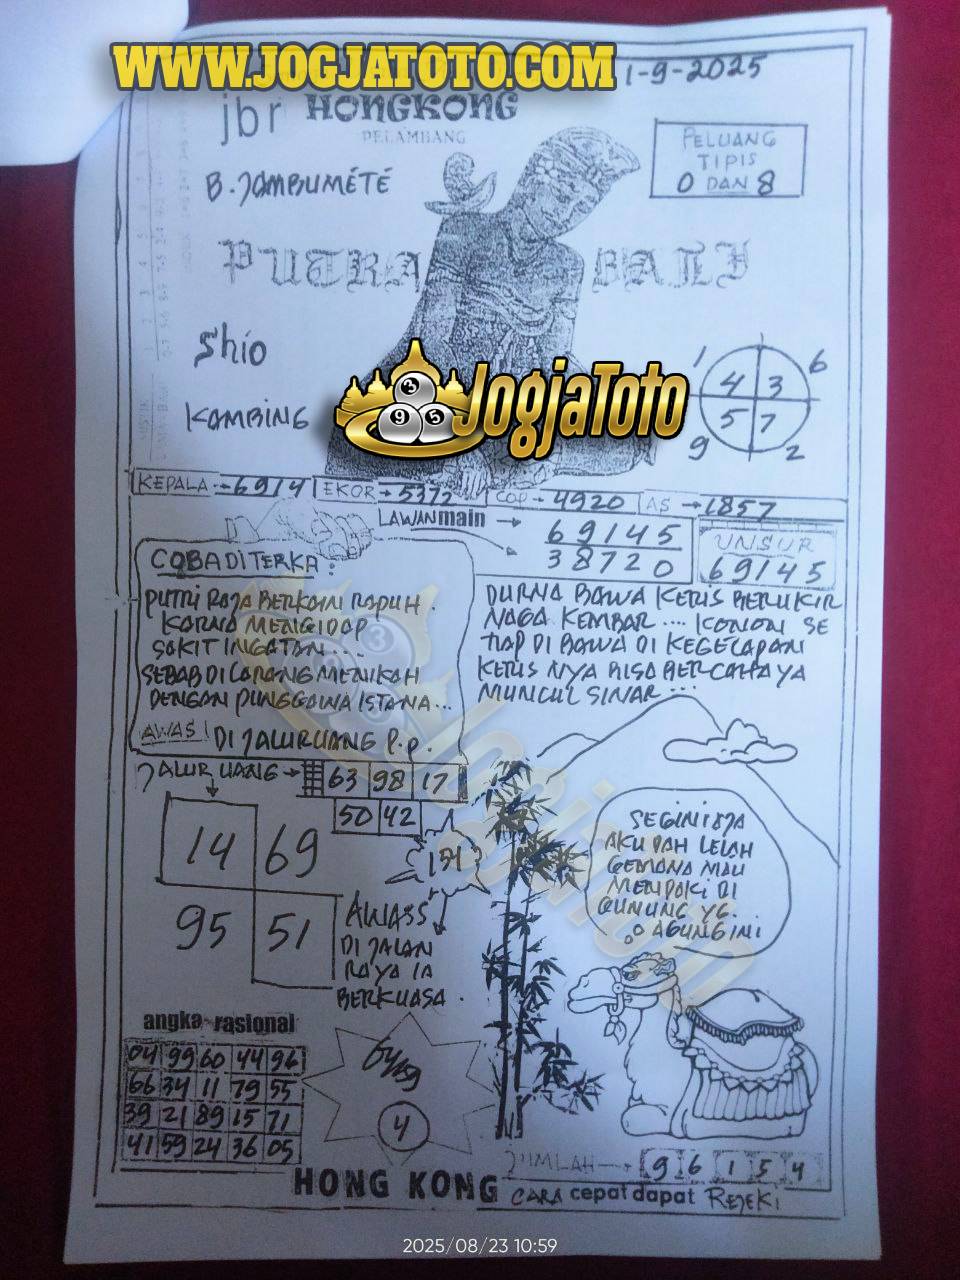 WWW.JOGJATOTO.COM
1-9-2025
jbr HONGKONG
PELAMBANG
PELUANG
TIPIS
0 DAN 8
B. JAMBUMÉTÉ
PUTRA BALI
Shio
KAMBING
1 6
4 3
5 7
9 2
3
9 5
JogjaToto
KEPALA → 6914 EKOR → 5372 COP → 4920 AS → 1857
LAWAN main →
69145
38720
UNSUR
69145
COBA DITERKA :
PUTRI RAJA BERKAINI RAPUH .
KARNA MENGIDAP
SAKIT INGATAN ...
SEBAB DI LARANG MENIKAH
DENGAN PUNGGAWA ISTANA ...
AWAS ! DI JALUR UANG P.P.
DURNA BAWA KERIS BERUKIR
NAGA KEMBAR .... KONON SE
TIAP DI BAWA DI KEGELAPAN
KERIS NYA BISA BERCAHAYA
MUNCUL SINAR ...
JALUR UANG → 63 98 17
50 42
14 69
95 51
AWASS
DI JALAN
RAYA IA
BERKUASA .
SEGINI AJA
AKU DAH LELAH
GEMANA MAU
MENDAKI DI
GUNUNG YG.
AGUNG INI
angka rasional
04 99 60 44 96
66 34 11 79 55
39 21 89 15 71
41 59 24 36 05
4
JUMLAH → 9 6 1 5 4
HONG KONG CARA cepat dapat REJEKI
2025/08/23 10:59